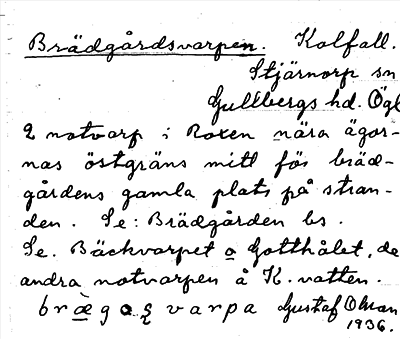 Brädgårdsvarpen. Kolfall.
Stjärnorp sn
Gullbergs hd. Ögl
2 notvarp i Roxen nära ägor-
nas östgräns mitt för bräd-
gårdens gamla plats på stran-
den. Se: Brädgården bs.
Se. Bäckvarpet o Gotthålet, de
andra notvarpen å K. vatten.
varpa Gustaf Olson
1936.